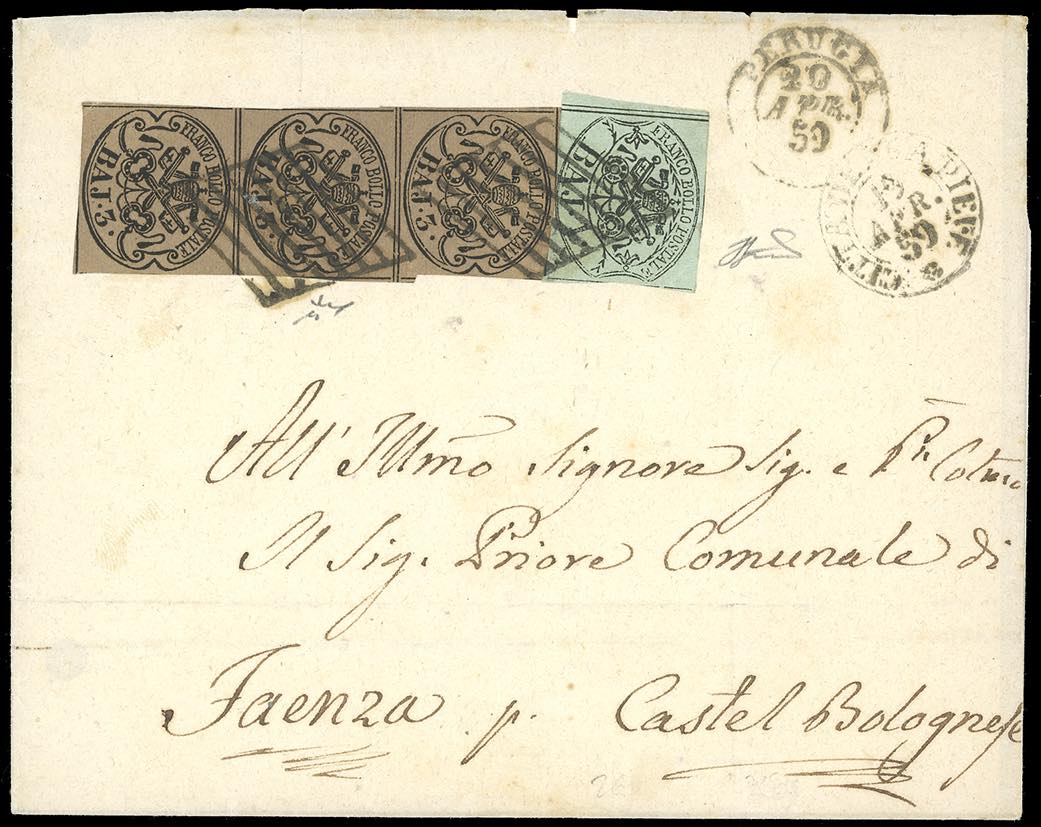 FRANCO BOLLO POSTALE
BAJ: 2.
FRANCO BOLLO POSTALE
BAJ: 2.
FRANCO BOLLO POSTALE
BAJ: 2.
FRANCO BOLLO POSTALE
BAJ
PERUGIA
20
APR.
59
CITTA DELLA PIEVE
APR.
59
All' Illmō Signore Sig. e
Il Sig. Priore Comunale di
Faenza p. Castel Bolognese